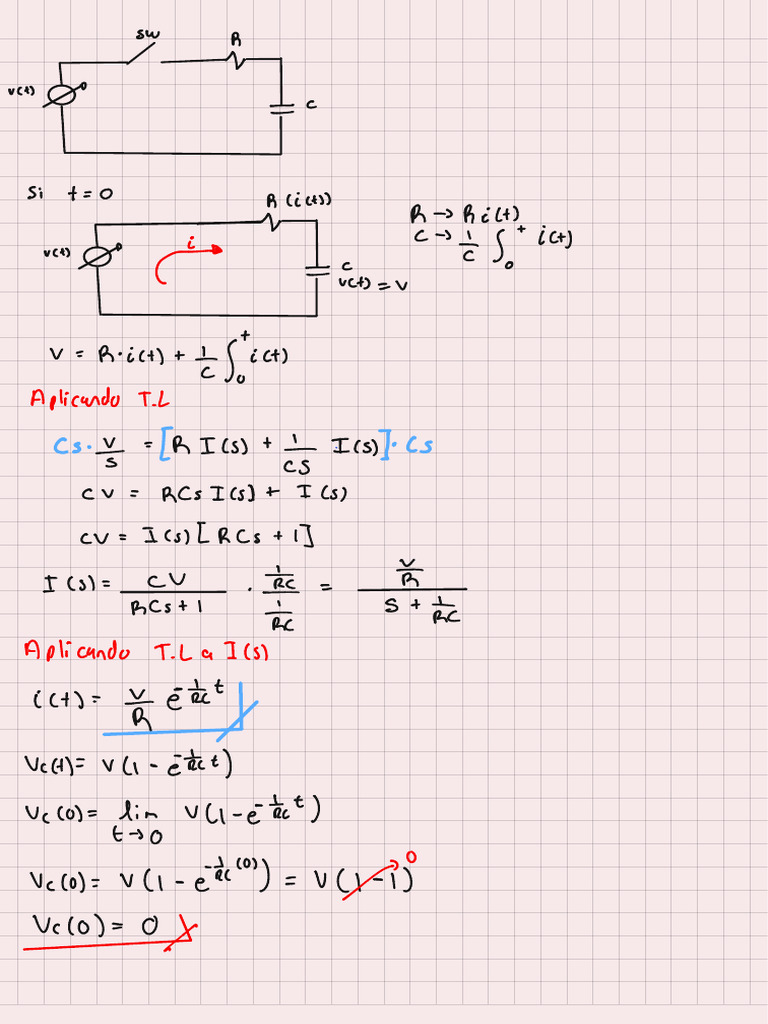 sw
R
v(t)
C
Si t = 0
R (i(t))
v(t)
i
C
v(t) = V
R → R i(t)
C → 1/C ∫₀ᵗ i(t)
V = R·i(t) + 1/C ∫₀ᵗ i(t)
Aplicando T.L
Cs · V/s = [R I(s) + 1/CS I(s)] · Cs
CV = RCs I(s) + I(s)
CV = I(s) [RCs + 1]
I(s) = CV/(RCs + 1) · (1/RC)/(1/RC) = (V/R)/(S + 1/RC)
Aplicando T.L a I(s)
i(t) = V/R e^(-1/RC t)
Vc(t) = V(1 - e^(-1/RC t))
Vc(0) = lim t→0 V(1 - e^(-1/RC t))
Vc(0) = V(1 - e^(-1/RC (0))) = V(1 - 1) 0
Vc(0) = 0